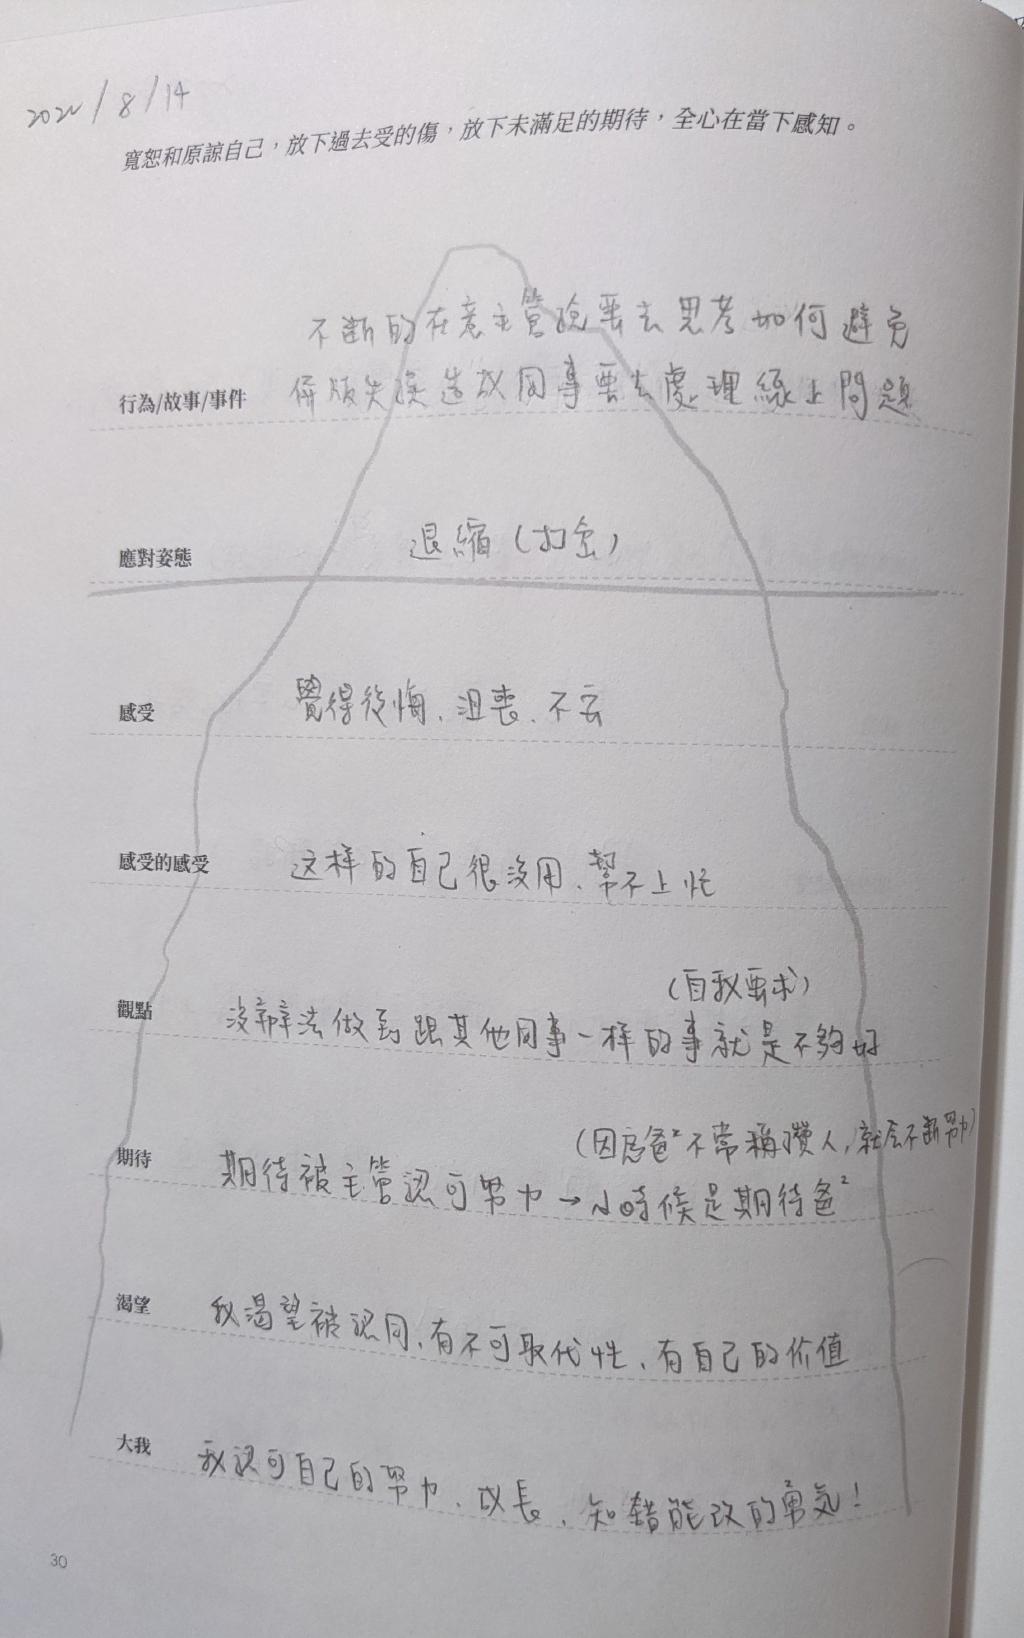 2022/8/14
寬恕和原諒自己，放下過去受的傷，放下未滿足的期待，全心在當下感知。
不斷的在意主管說要去思考如何避免
行為/故事/事件 併版失誤造成同事要去處理線上問題
應對姿態 退縮（打岔）
感受 覺得後悔、沮喪、不安
感受的感受 这样的自己很沒用、幫不上忙
（自我要求）
觀點 沒辦法做到跟其他同事一样的事就是不夠好
（因為爸² 不常稱讚人，就会不斷努力）
期待 期待被主管認可努力→小時候是期待爸²
渴望 我渴望被認同、有不可取代性、有自己的价值
大我 我認可自己的努力、成長、知錯能改的勇気！
30